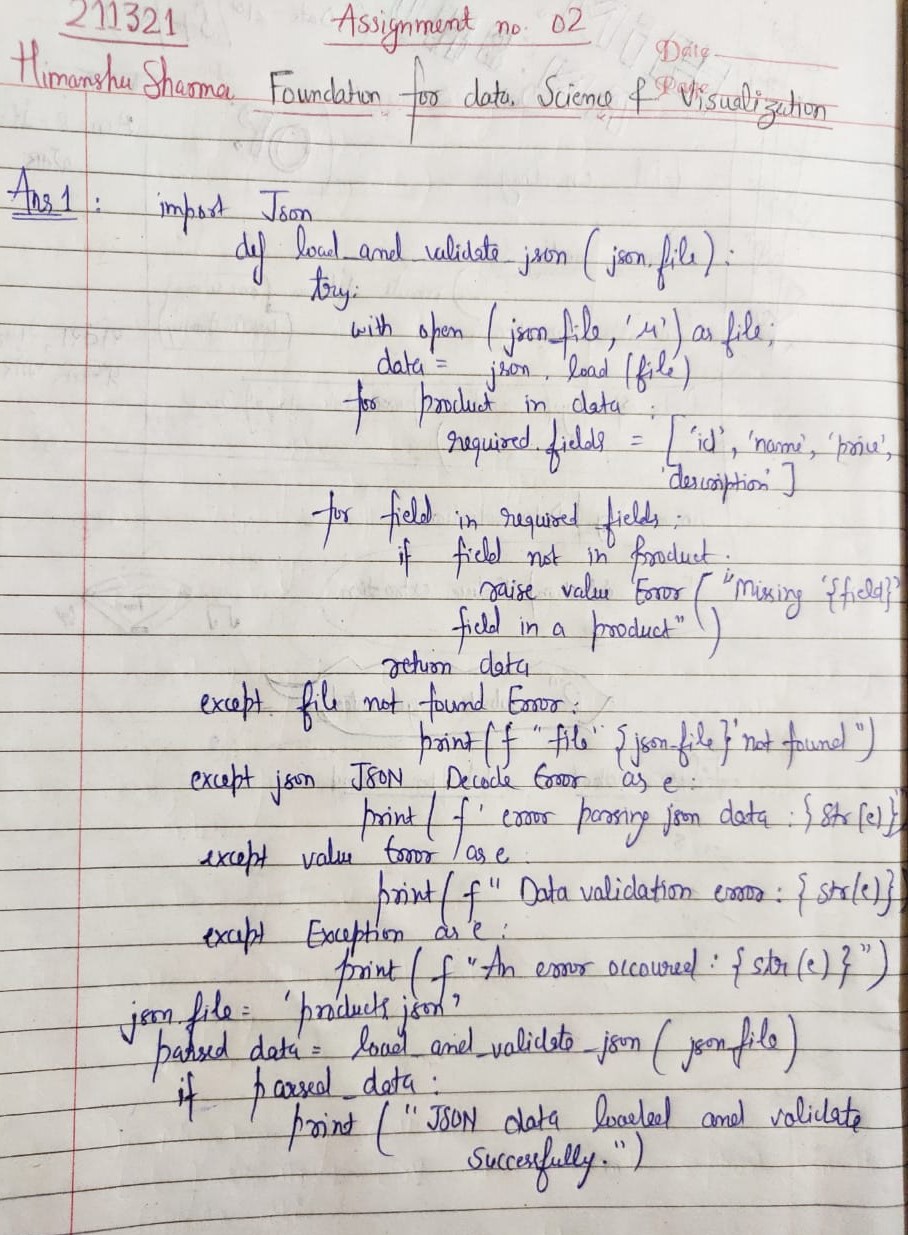 211321 Assignment no. 02
Date
Himanshu Sharma Foundation for data Science & Visualization
Ans 1 : import Json
def load_and_validate_json (json_file):
try:
with open (json_file, 'r') as file;
data = json. load (file)
for product in data :
required_fields = ['id', 'name', 'price',
'description']
for field in required_fields :
if field not in product.
raise value Error ("Missing '{field}'
field in a product")
return data
except file not found Error :
print (f "file' {json_file}' not found")
except json JSON Decode Error as e:
print (f' error parsing json data : {str(e)}
except value Error as e
print (f" Data validation error : {str(e)}
except Exception as e :
print (f "An error occoured : {str (e)}")
json_file = 'products.json'
parsed data = load_and_validate_json (json_file)
if parsed_data :
print ("JSON data loaded and validate
Successfully.")